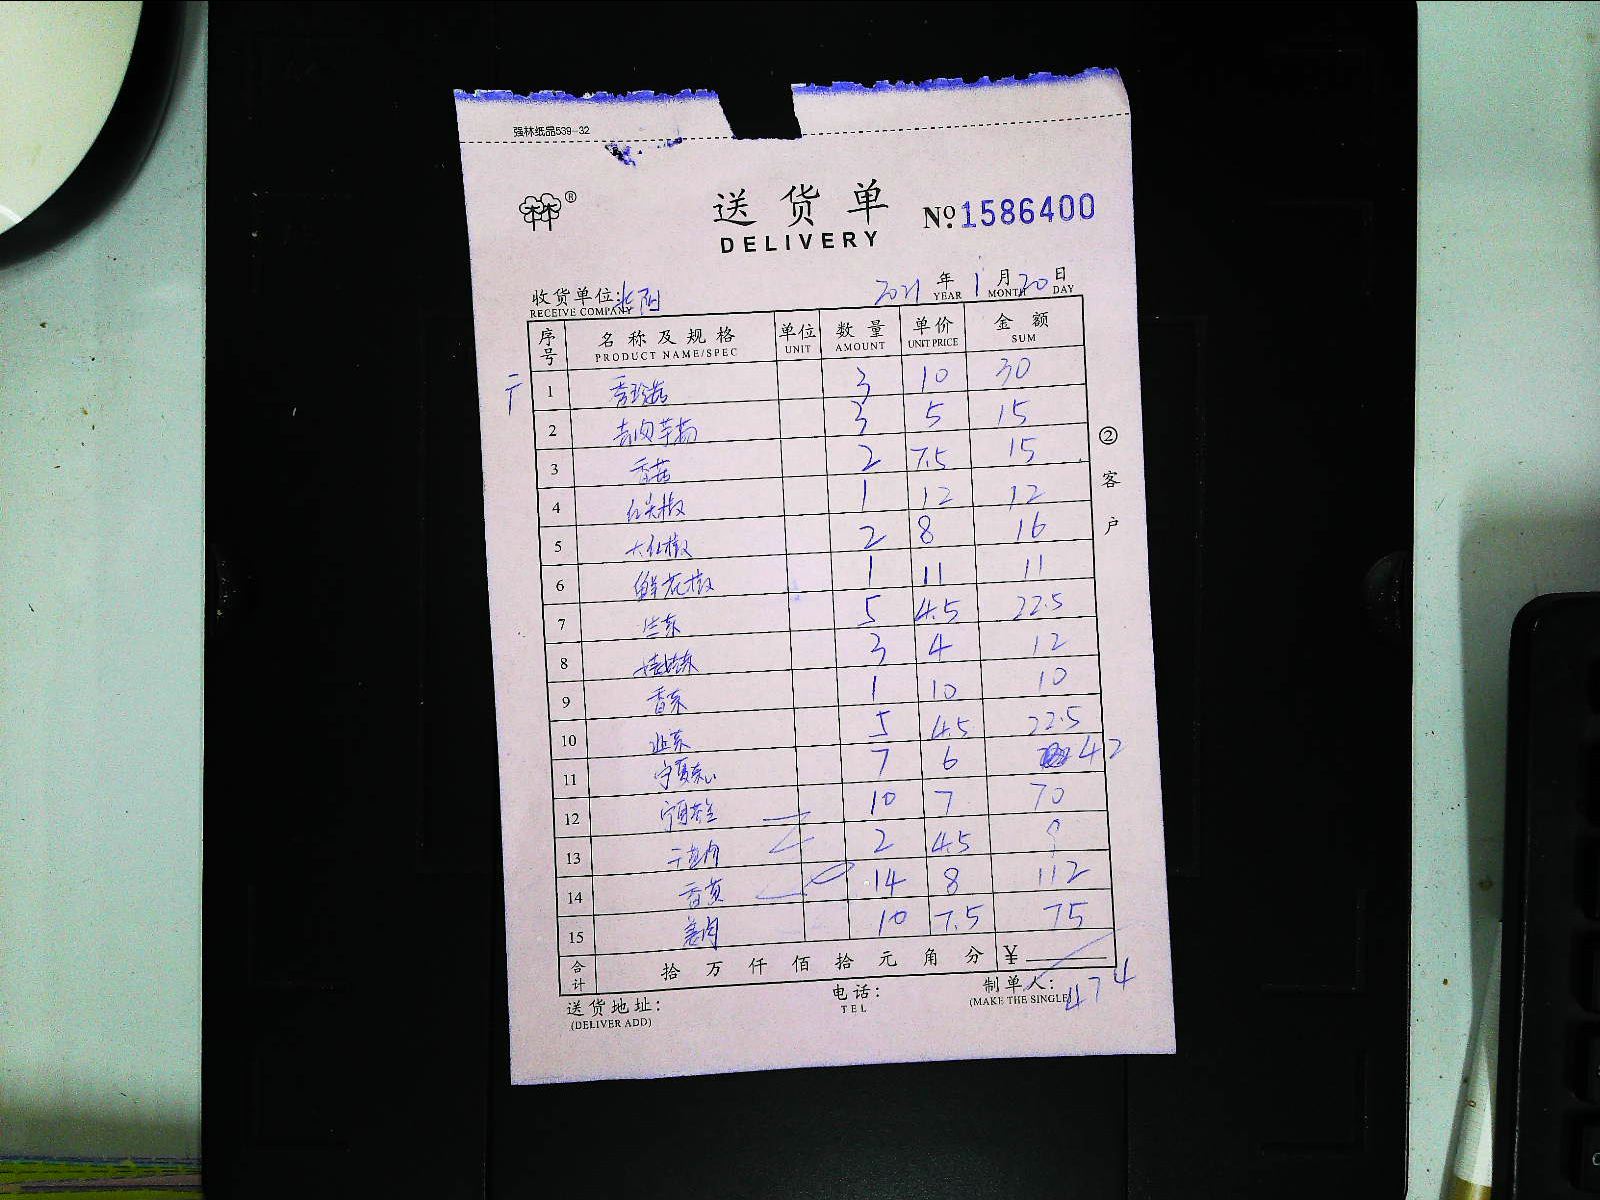 强林纸品539-32
送货单
DELIVERY
№ 1586400
2021 年 1 月 20 日
YEAR MONTH DAY
收货单位:
RECEIVE COMPANY
序号 名称及规格 单位 数量 单价 金额
PRODUCT NAME/SPEC UNIT AMOUNT UNIT PRICE SUM
1 秀珍菇 3 10 30
2 3 5 15
3 香菇 2 7.5 15
4 红尖椒 1 12 12
5 大红椒 2 8 16
6 鲜花椒 1 11 11
7 5 4.5 22.5
8 3 4 12
9 香菜 1 10 10
10 5 4.5 22.5
11 宁夏菜心 7 6 42
12 10 7 70
13 2 4.5 9
14 14 8 112
15 姜肉 10 7.5 75
合计 拾 万 仟 佰 拾 元 角 分 ¥
474
②客户
送货地址: 电话: 制单人:
(DELIVER ADD) TEL (MAKE THE SINGLE)